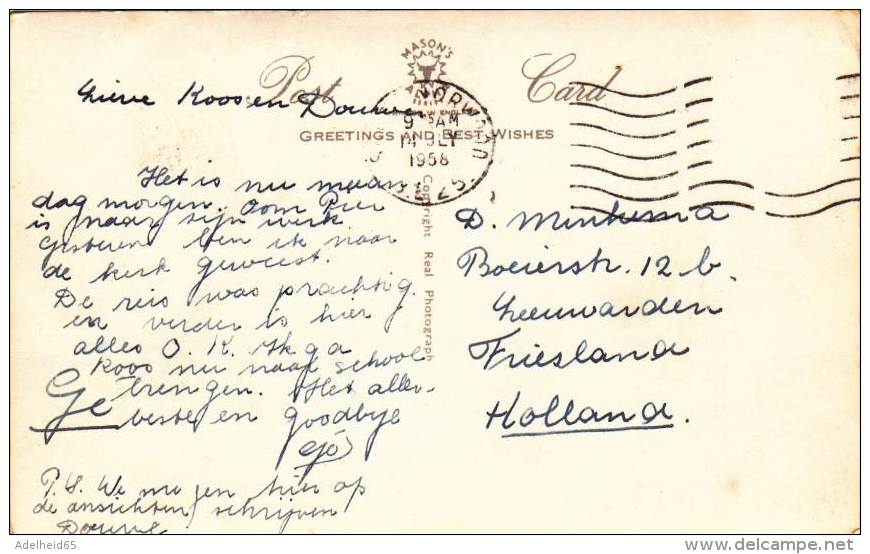 Post Card
MASON'S
ALPHA
SERIES
MADE IN ENGLAND
GREETINGS AND BEST WISHES
NORWOOD
9 AM
14 JLY
1958
S.E. 25
Copyright Real Photograph
Lieve Koos en Douwe
Het is nu maan
dag morgen. Oom Pier
is naar zijn werk.
Gisteren ben ik naar
de kerk geweest.
De reis was prachtig
en verder is hier
alles O.K. Ik ga
Koos nu naar school
brengen. Het aller-
beste en goodbye
P.S. We mogen hier op
de ansichten schrijven
Douwe
D. Minkema
Boeierstr. 12 b.
Leeuwarden
Friesland
Holland.
© Adelheid65
delcampe.net